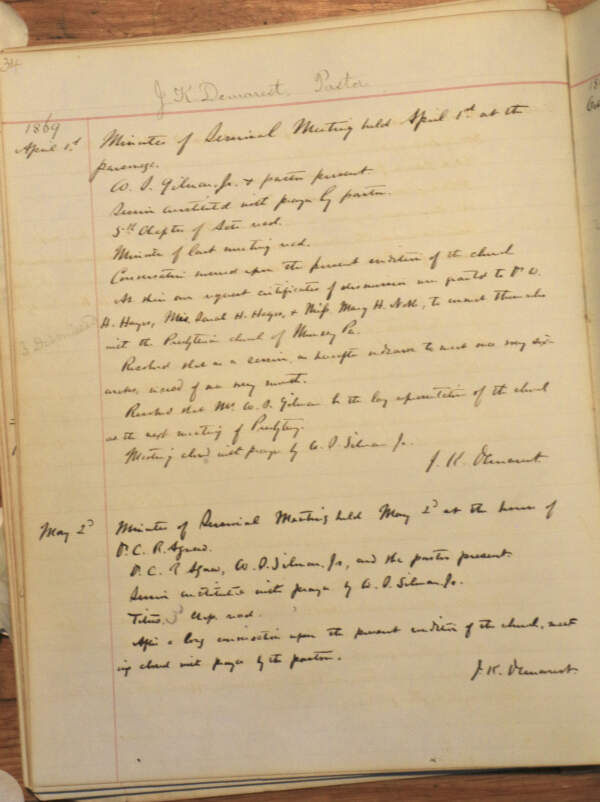 34
J. K. Demarest, Pastor
1869
April 1st Minutes of Sessional Meeting held April 1st at the
parsonage.
W. D. Gilman, Jr. & pastor present.
Session constituted with prayer by pastor.
5th Chapter of Acts read.
Minutes of last meeting read.
Conversation ensued upon the present condition of the church
At their own request certificates of dismission are granted to Dr. W.
H. Hayes, Mrs. Sarah H. Hayes, & Miss Mary H. Noll, to connect themselves
with the Presbyterian church of Muncey Pa.
3 Dismissed
Resolved that as a session, we hereafter endeavor to meet once every six
weeks, instead of once every month.
Resolved that Mr. W. D. Gilman be the lay representative of the church
at the next meeting of Presbytery.
Meeting closed with prayer by W. D. Gilman Jr.
J. K. Demarest
May 2d Minutes of Sessional Meeting held May 2d at the house of
Dr. C. R. Agnew.
Dr. C. R. Agnew, W. D. Gilman, Jr., and the pastor present.
Session constituted with prayer by W. D. Gilman Jr.
Titus, 3d Chap. read.
After a long conversation upon the present condition of the church, meet
ing closed with prayer by the pastor.
J. K. Demarest.